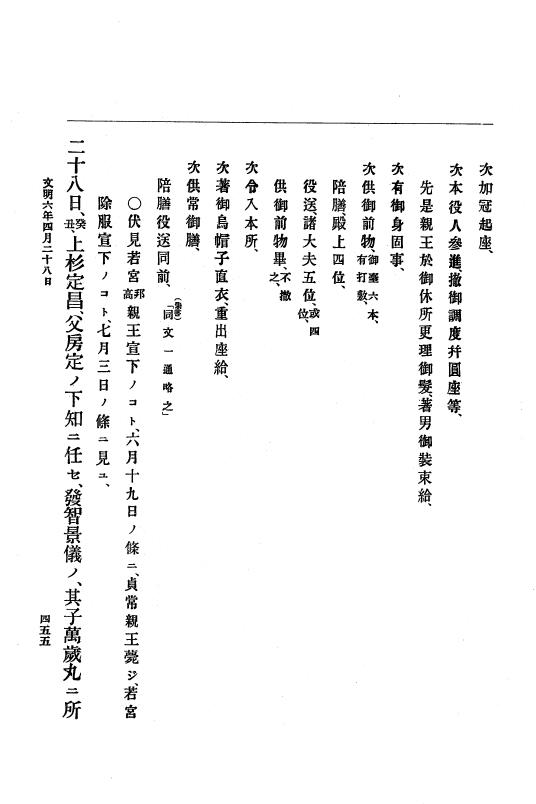 次加冠起座、
次本役人參進、撤御調度幷圓座等、
先是親王於御休所更理御髮、著男御裝束給、
次有御身固事、
次供御前物、御臺六本、有打敷、
陪膳、殿上四位、
役送、諸大夫五位、或四位、
供御前物畢、不撤之、
次令入本所、
次著御烏帽子直衣、重出座給、
次供常御膳、
陪膳役送同前、「同文一通略之」
〇伏見若宮邦高親王宣下ノコト、六月十九日ノ條ニ、貞常親王薨ジ、若宮
除服宣下ノコト、七月三日ノ條ニ見ユ、
二十八日、癸丑、上杉定昌、父房定ノ下知ニ任セ、發智景儀ノ、其子萬歲丸ニ所
文明六年四月二十八日
四五五